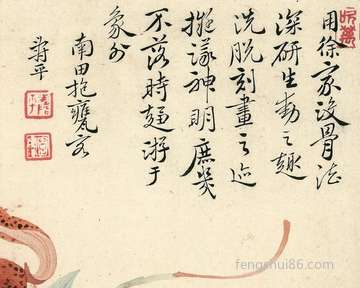 用徐家没骨法
深研生動之趣
洗脱刻畫之迹
擬議神明庶幾
不落時趨游于
象外
南田抱甕客
壽平
fengshui86.com